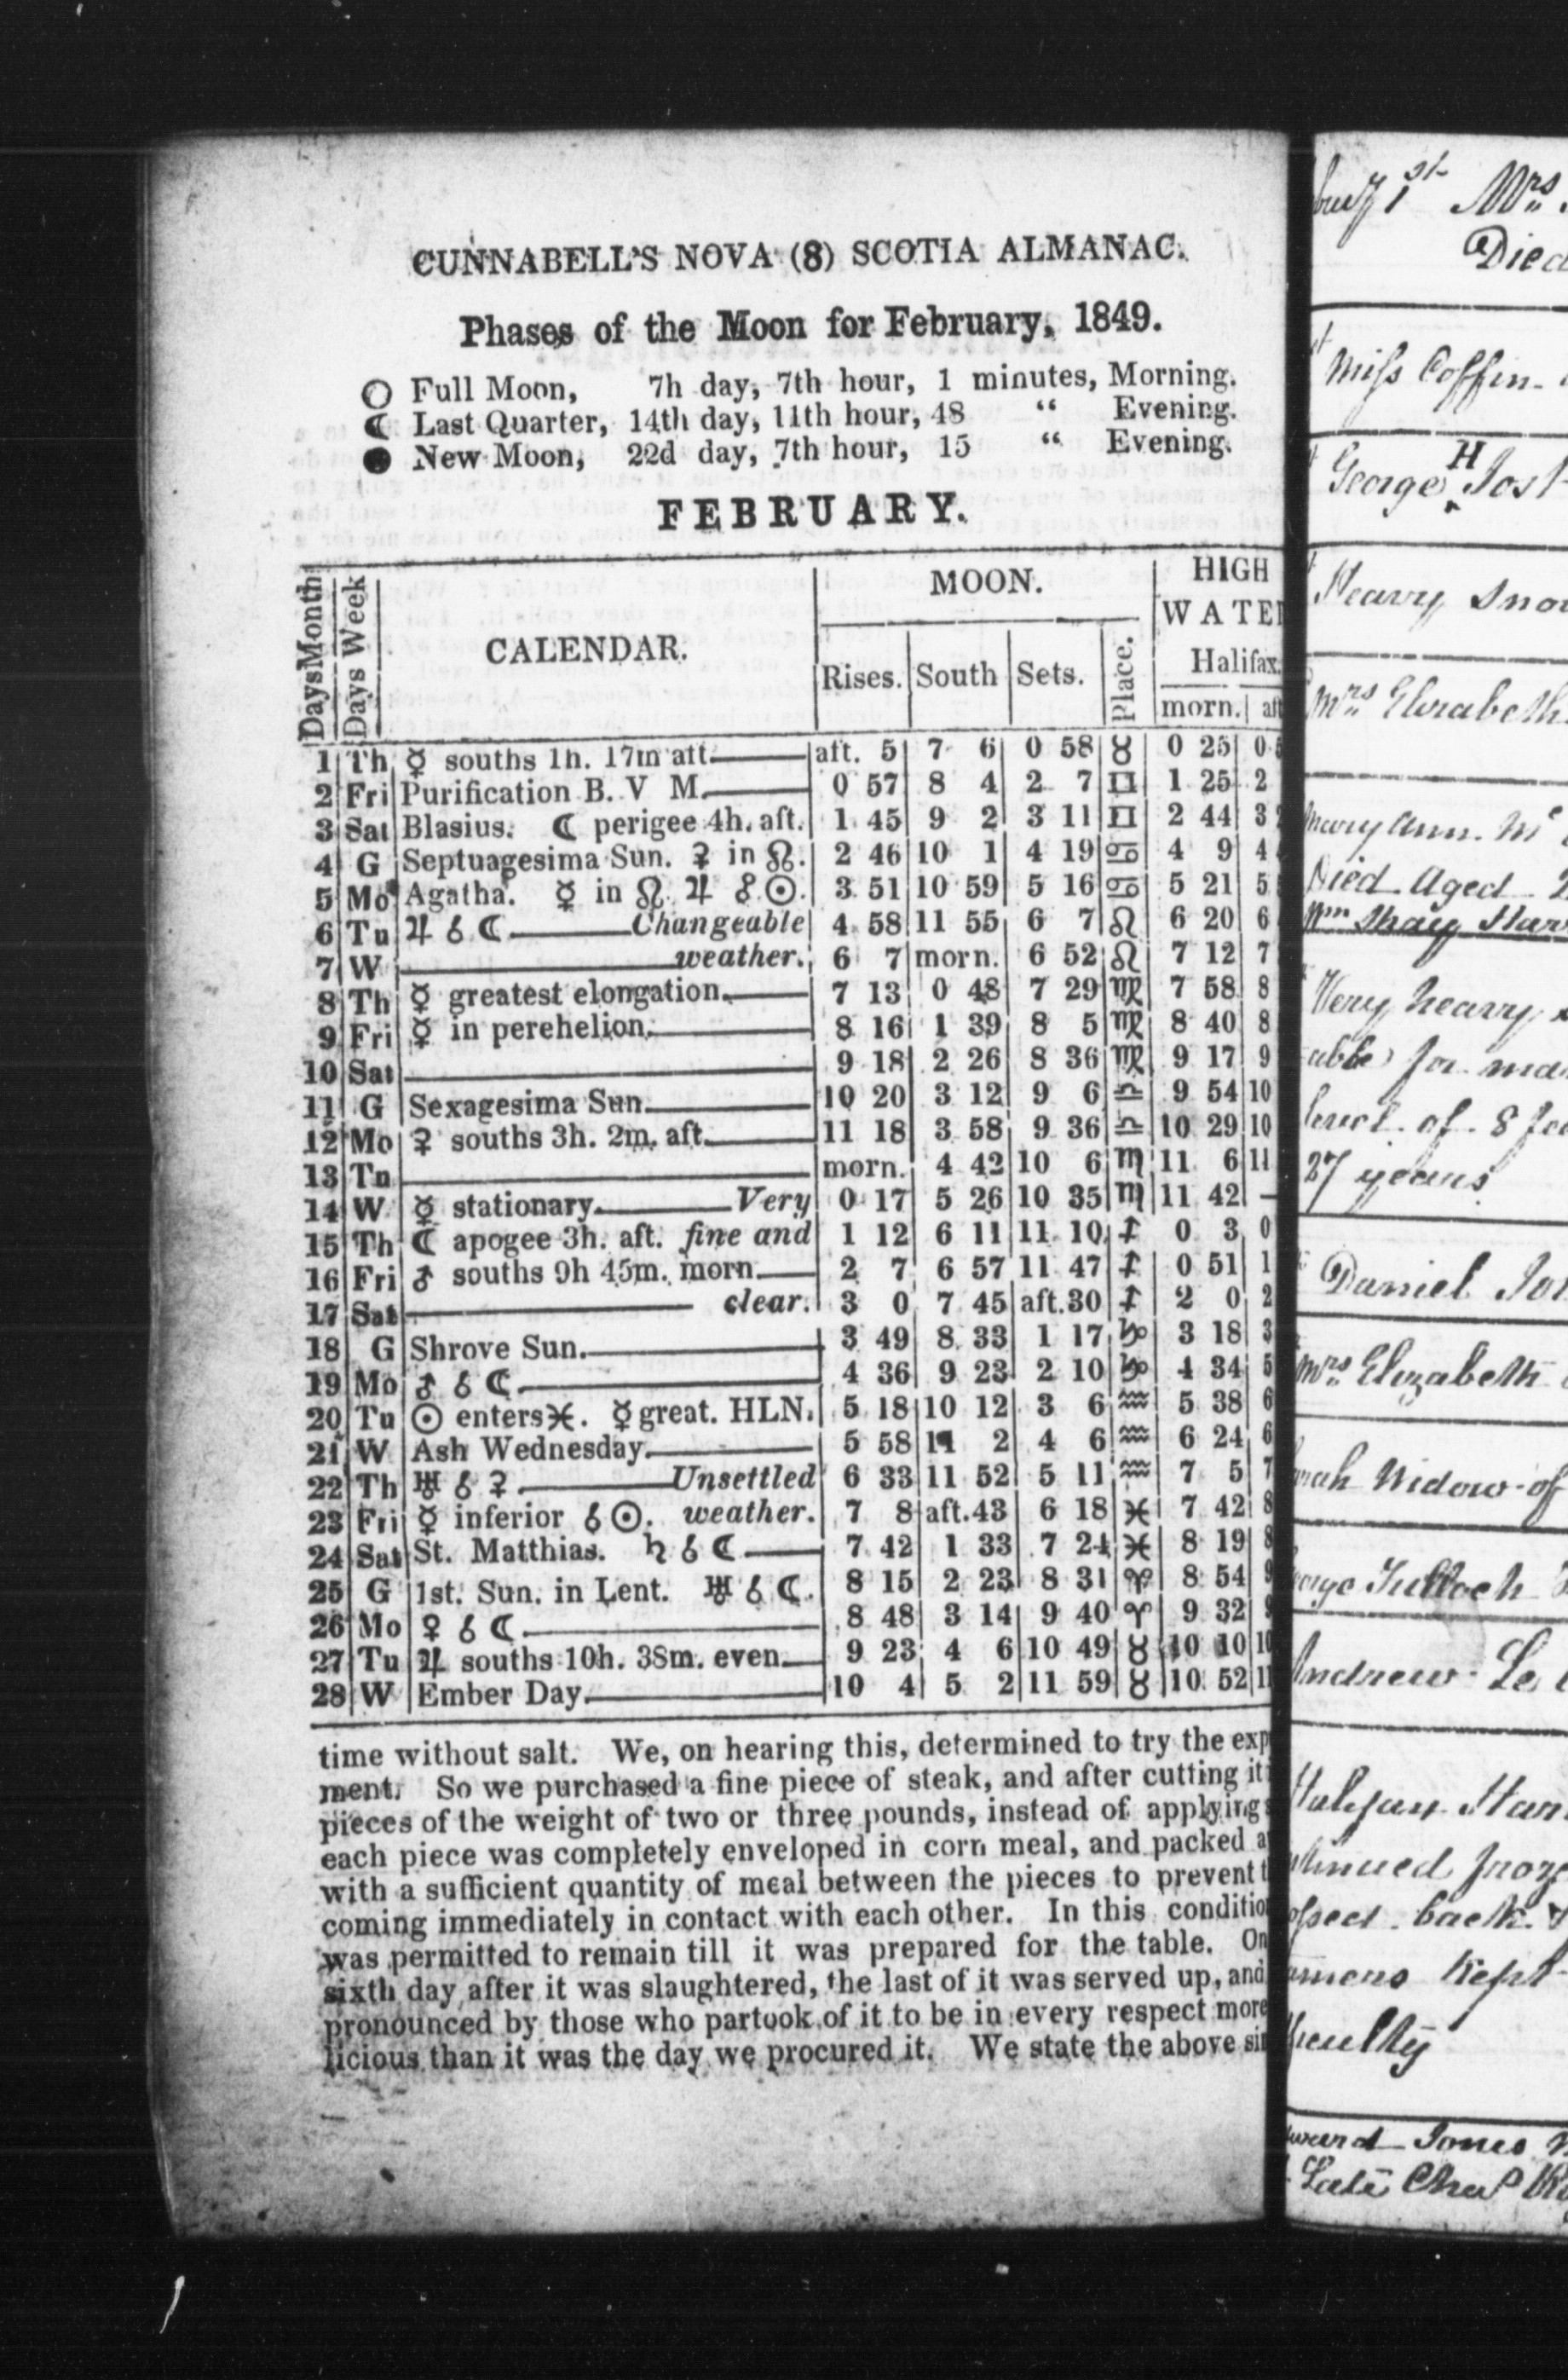 CUNNABELL'S NOVA (8) SCOTIA ALMANAC.
Phases of the Moon for February, 1849.
○ Full Moon, 7h day, 7th hour, 1 minutes, Morning.
☾ Last Quarter, 14th day, 11th hour, 48 “ Evening.
● New Moon, 22d day, 7th hour, 15 “ Evening.
FEBRUARY.
DaysMonth Days Week CALENDAR. MOON. HIGH
WATE
Rises. South Sets. Place. Halifax.
morn. aft
1 Th ☿ souths 1h. 17m aft. aft. 5 7 6 0 58 ♉ 0 25 0
2 Fri Purification B. V M. 0 57 8 4 2 7 ♊ 1 25 2
3 Sat Blasius. ☾ perigee 4h. aft. 1 45 9 2 3 11 ♊ 2 44 3
4 G Septuagesima Sun. ☿ in ☊. 2 46 10 1 4 19 ♋ 4 9 4
5 Mo Agatha. ☿ in ☊ ♃ ☍ ☉. 3 51 10 59 5 16 ♋ 5 21 5
6 Tu ♃ ☌ ☾ Changeable 4 58 11 55 6 7 ♌ 6 20 6
7 W weather. 6 7 morn. 6 52 ♌ 7 12 7
8 Th ☿ greatest elongation. 7 13 0 48 7 29 ♍ 7 58 8
9 Fri ☿ in perehelion. 8 16 1 39 8 5 ♍ 8 40 8
10 Sat 9 18 2 26 8 36 ♍ 9 17 9
11 G Sexagesima Sun. 10 20 3 12 9 6 ♎ 9 54 10
12 Mo ♀ souths 3h. 2m. aft. 11 18 3 58 9 36 ♎ 10 29 10
13 Tu morn. 4 42 10 6 ♏ 11 6 11
14 W ☿ stationary. Very 0 17 5 26 10 35 ♏ 11 42 —
15 Th ☾ apogee 3h. aft. fine and 1 12 6 11 11 10 ♐ 0 3 0
16 Fri ♂ souths 9h 45m. morn. 2 7 6 57 11 47 ♐ 0 51 1
17 Sat clear. 3 0 7 45 aft.30 ♐ 2 0 2
18 G Shrove Sun. 3 49 8 33 1 17 ♑ 3 18 3
19 Mo ♂ ☌ ☾ 4 36 9 23 2 10 ♑ 4 34 5
20 Tu ☉ enters ♓. ☿ great. HLN. 5 18 10 12 3 6 ♒ 5 38 6
21 W Ash Wednesday. 5 58 11 2 4 6 ♒ 6 24 6
22 Th ♅ ☌ ♀. Unsettled 6 33 11 52 5 11 ♒ 7 5 7
23 Fri ☿ inferior ☌ ☉. weather. 7 8 aft.43 6 18 ♓ 7 42 8
24 Sat St. Matthias. ♄ ☌ ☾ 7 42 1 33 7 24 ♓ 8 19 8
25 G 1st. Sun. in Lent. ♅ ☌ ☾. 8 15 2 23 8 31 ♈ 8 54 9
26 Mo ♀ ☌ ☾ 8 48 3 14 9 40 ♈ 9 32 9
27 Tu ♃ souths 10h. 38m. even. 9 23 4 6 10 49 ♉ 10 10 10
28 W Ember Day. 10 4 5 2 11 59 ♉ 10 52 11
time without salt. We, on hearing this, determined to try the exp
ment. So we purchased a fine piece of steak, and after cutting it
pieces of the weight of two or three pounds, instead of applying
each piece was completely enveloped in corn meal, and packed a
with a sufficient quantity of meal between the pieces to prevent t
coming immediately in contact with each other. In this conditio
was permitted to remain till it was prepared for the table. On
sixth day after it was slaughtered, the last of it was served up, and
pronounced by those who partook of it to be in every respect more
licious than it was the day we procured it. We state the above sin
1st Mrs
Died
Miss Coffin
George H Jost
Heavy Snow
Mrs Elizabeth
Mary Ann. Mc
Died Aged 2
Wm Shay
Very heavy
able for
level of 8 fee
27 years
Daniel
Mrs Elizabeth
Widow of
Tulloch
Andrew Le
back
Kept
Jones
Late Chas